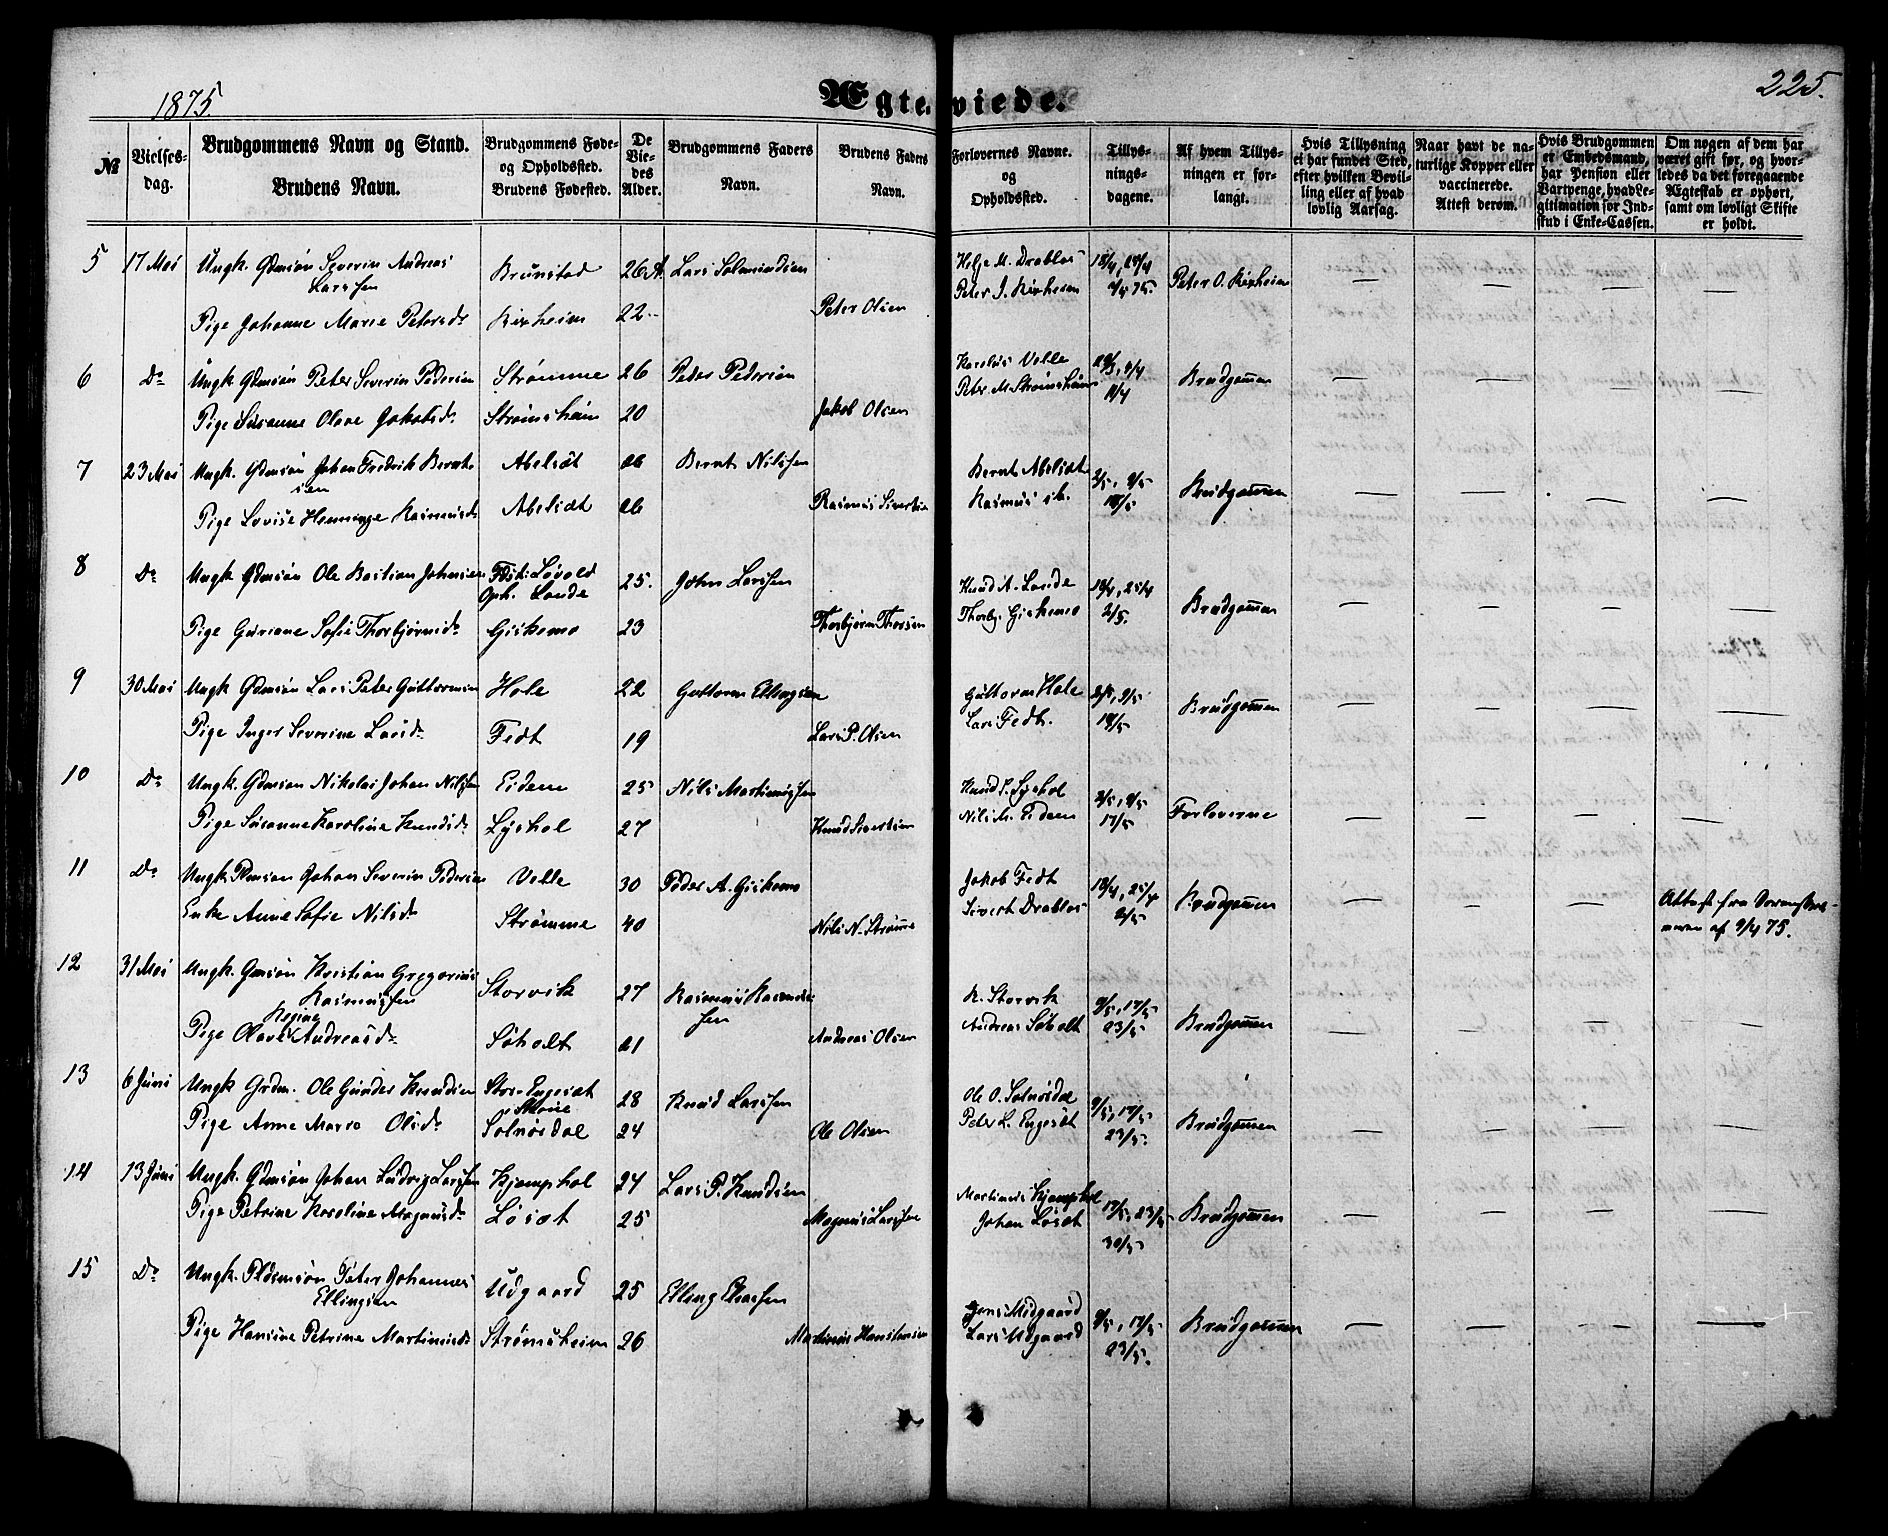 1875.
Ægteviede.
225.
№
Vielses-dag.
Brudgommens Navn og Stand.
Brudens Navn.
Brudgommens Føde- og Opholdssted.
Brudens Fødested.
De Viedes Alder.
Brudgommens Faders Navn.
Brudens Faders Navn.
Forlovernes Navne. og Opholdssted.
Tillysningsdagene.
Af hvem Tillysningen er forlangt.
Hvis Tillysning ei har fundet Sted, efter hvilken Bevilling eller af hvad lovlig Aarsag.
Naar havt de naturlige Kopper eller vaccinerede. Attest derom.
Hvis Brudgommen er Embedsmand, har Pension eller Vartpenge, hvad Legitimation for Indskud i Enke-Cassen.
Om nogen af dem har været gift før, og hvorledes da det foregaaende Ægteskab er ophørt, samt om lovligt Skifte er holdt.
5 17 Mai Ungk. Gdmsøn Severin Andreas Larssen Brunstad 26 A. Lars Helge M. Drabløs 18/4, 25/4 Peter O. Kirheim — — — —
Pige Johanne Marie Petersd. 22 Peter Olsen
6 Do Ungk. Gdmsøn Peter Severin Pedersen Strømme 26 Peder Pedersen Karolus Velle Brudgommen — — — —
Pige Susanne Olave Jakobsd. Strømsheim 20 Jakob Olsen Peter M. Strømsheim 11/4
7 23 Mai Ungk. Gdmsøn Johan Fredrik Berntsen Abelsæt 26 Bernt Nilssen Bernt Abelsæt 2/5, 9/5 Brudgommen — — — —
Pige Lovise Henninge Rasmusd. Abelsæt 26 Rasmus Sivertsen Rasmus ib.
8 Do Ungk. Gdmsøn Ole Bastian Johnsen Fdst: Løvold Oph. Lande 25. John Larssen Knud A. Lande 18/4, 25/4 Brudgommen — — — —
Pige Guriane Sofie Thorbjørnsd. Giskemo 23 Thorbjørn Thorsen Thorbj. Giskemo 2/5.
9 30 Mai Ungk. Gdmsøn Lars Peter Guttormsen Hole 22 Guttorm Ellingsen Guttorm Hole 2/5, 9/5 Brudgommen — — — —
Pige Inger Severine Larsd. Fedt 19 Lars P. Olsen Lars Fedt.
10 Do Ungk. Gdmsøn Nikolai Johan Nilssen Eidem 25 Nils Martinussen Knud S. Lyshol 2/5, 9/5 Forloverne — — — —
Pige Susanne Karoline Knudsd. Lyshol 27 Knud Sivertsen Nils M. Eidem 17/5
11 Do Ungk. Johan Severin Pedersen Velle 30 Peder A. Giskemo Jakob Fedt 18/4, 25/4 Brudgommen — — — Attest fra
Enke Anne Sofie Nilsd. Strømme 40 Nils N. Strømme Sivert Drabløs 2/5 af 9/4 75.
12 31 Mai Ungk. Gmsøn Kristian Gregorius Rasmussen Storvik 27 Rasmus Rasmussen R. Storvik 9/5, 17/5 Brudgommen — — — —
Pige Olave Regine Andreasd. Søholt 21 Andreas Olsen Andreas Søholt 23/5
13 6 Juni Ungk. Grdm. Ole Gunder Knudsen Store Engesæt 28 Knud Larssen Ole O. Solnørdal 9/5, 17/5 Brudgommen — — — —
Pige Anne Marie Olsd. Solnørdal 24 Ole Olsen Peter L. Engesæt 23/5.
14 13 Juni Ungk. Gdmsøn Johan Ludvig Larssen Kjemphol 24 Lars P. Knudsen Martinus Kjemphol 17/5, 23/5 Brudgommen — — — —
Pige Petrine Karoline Magnusd. Løsæt 25 Magnus Larssen Johan Løsæt 30/5
15 Do Ungk. Peter Johannes Ellingsen Udgaard 25 Elling Eliassen Jens Midgaard 9/5, 17/5 Brudgommen — — — —
Pige Hansine Petrine Martinusd. Strømsheim 26 Martinus Lars Udgaard 23/5.